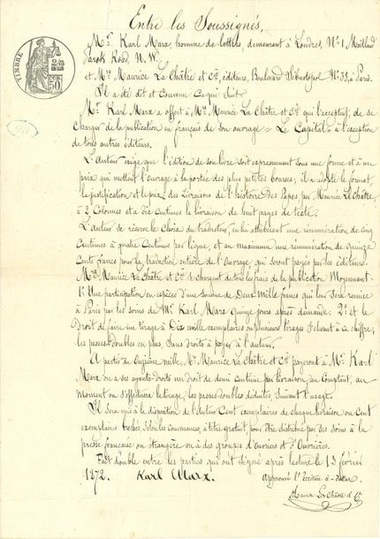 Entre les Soussignés,
Mr. Karl Marx, homme de lettres, demeurant à Londres, No 1, Maitland
Park Road, N.W.
et Mr. Maurice La Châtre et Cie, éditeurs, Boulevard Sébastopol No 38, à Paris.
Il a été dit et convenu ce qui suit.
Mr. Karl Marx a offert à Mr. Maurice La Châtre et Cie qui l'acceptent, de se
charger de la publication en français de son ouvrage : Le Capital à l'exception
de tous autres éditeurs.
L'auteur exige que l'édition de son livre soit sous une forme et à un
prix qui mettent l'ouvrage à la portée des plus petites bourses; il le format,
la justification et le prix des livraisons de l'histoire des Papes par Maurice La Châtre,
à 2 Colonnes et à dix Centimes la livraison de huit pages de texte.
L'auteur se réserve le choix du traducteur, en lui une rémunération de cinq
Centimes à quatre Centimes par ligne, et au maximum une rémunération de quinze
Cents francs pour la traduction entière de l'ouvrage, qui seront payés par les éditeurs.
Mr. Maurice La Châtre et Cie se chargent de tous les frais de la publication Moyennant
1o Une participation en espèces d'une somme de Deux Mille francs qui leur sera remise
à Paris par les soins de Mr. Karl Marx quinze jours après demande; 2o et le
Droit de faire un tirage à Dix mille exemplaires ou plusieurs tirages s'élevant à ce chiffre,
les passes doubles en plus, sans droits à payer à l'auteur.
A partir du onzième mille, Mr. Maurice La Châtre et Cie payeront à Mr. Karl
Marx ou à ses ayants-droits un droit de demi Centime par livraison au Comptant, au
moment où s'effectuera le tirage, les passes doubles déduites, suivant l'usage.
Il sera mis à la disposition de l'auteur Cent exemplaires de chaque livraison, ou Cent
exemplaires brochés, selon les convenances, à titre gratuit, pour être distribués par ses soins à la
presse française ou étrangère ou à des groupes d'ouvriers et d'ouvrières.
Fait double entre les parties qui ont signé après lecture le 13 février
1872. Karl Marx. Approuvé l'écriture ci-dessus
Maurice La Châtre et Cie
TIMBRE
50